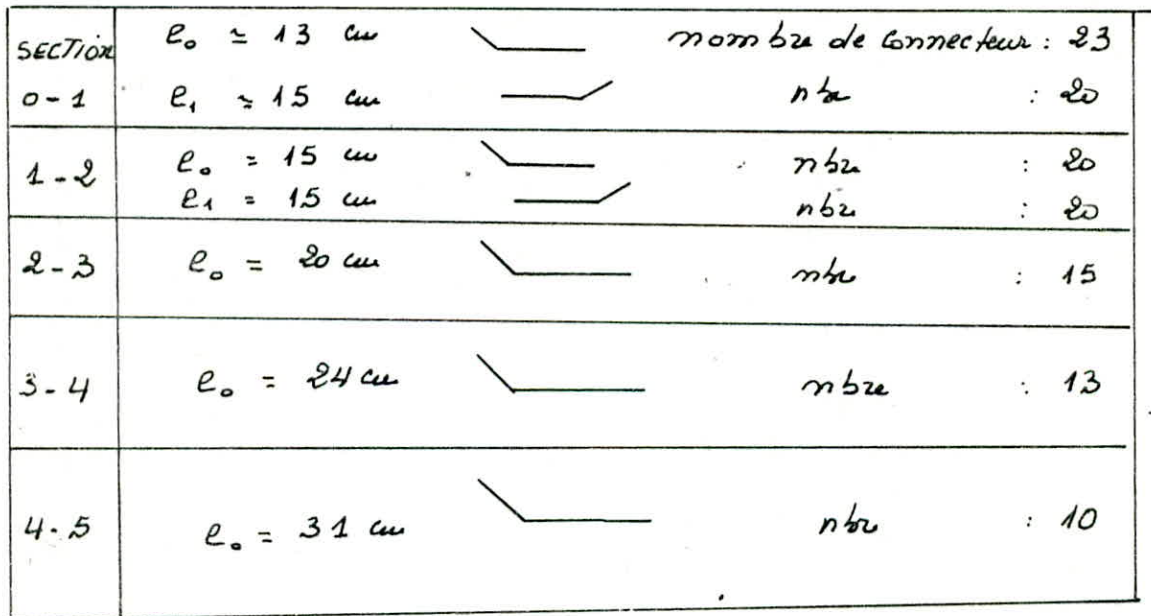 SECTION e₀ ≃ 13 cm nombre de connecteur : 23
0-1 e₁ ≃ 15 cm nbre : 20
1-2 e₀ = 15 cm nbre : 20
e₁ = 15 cm nbre : 20
2-3 e₀ = 20 cm nbre : 15
3-4 e₀ = 24 cm nbre : 13
4-5 e₀ = 31 cm nbre : 10